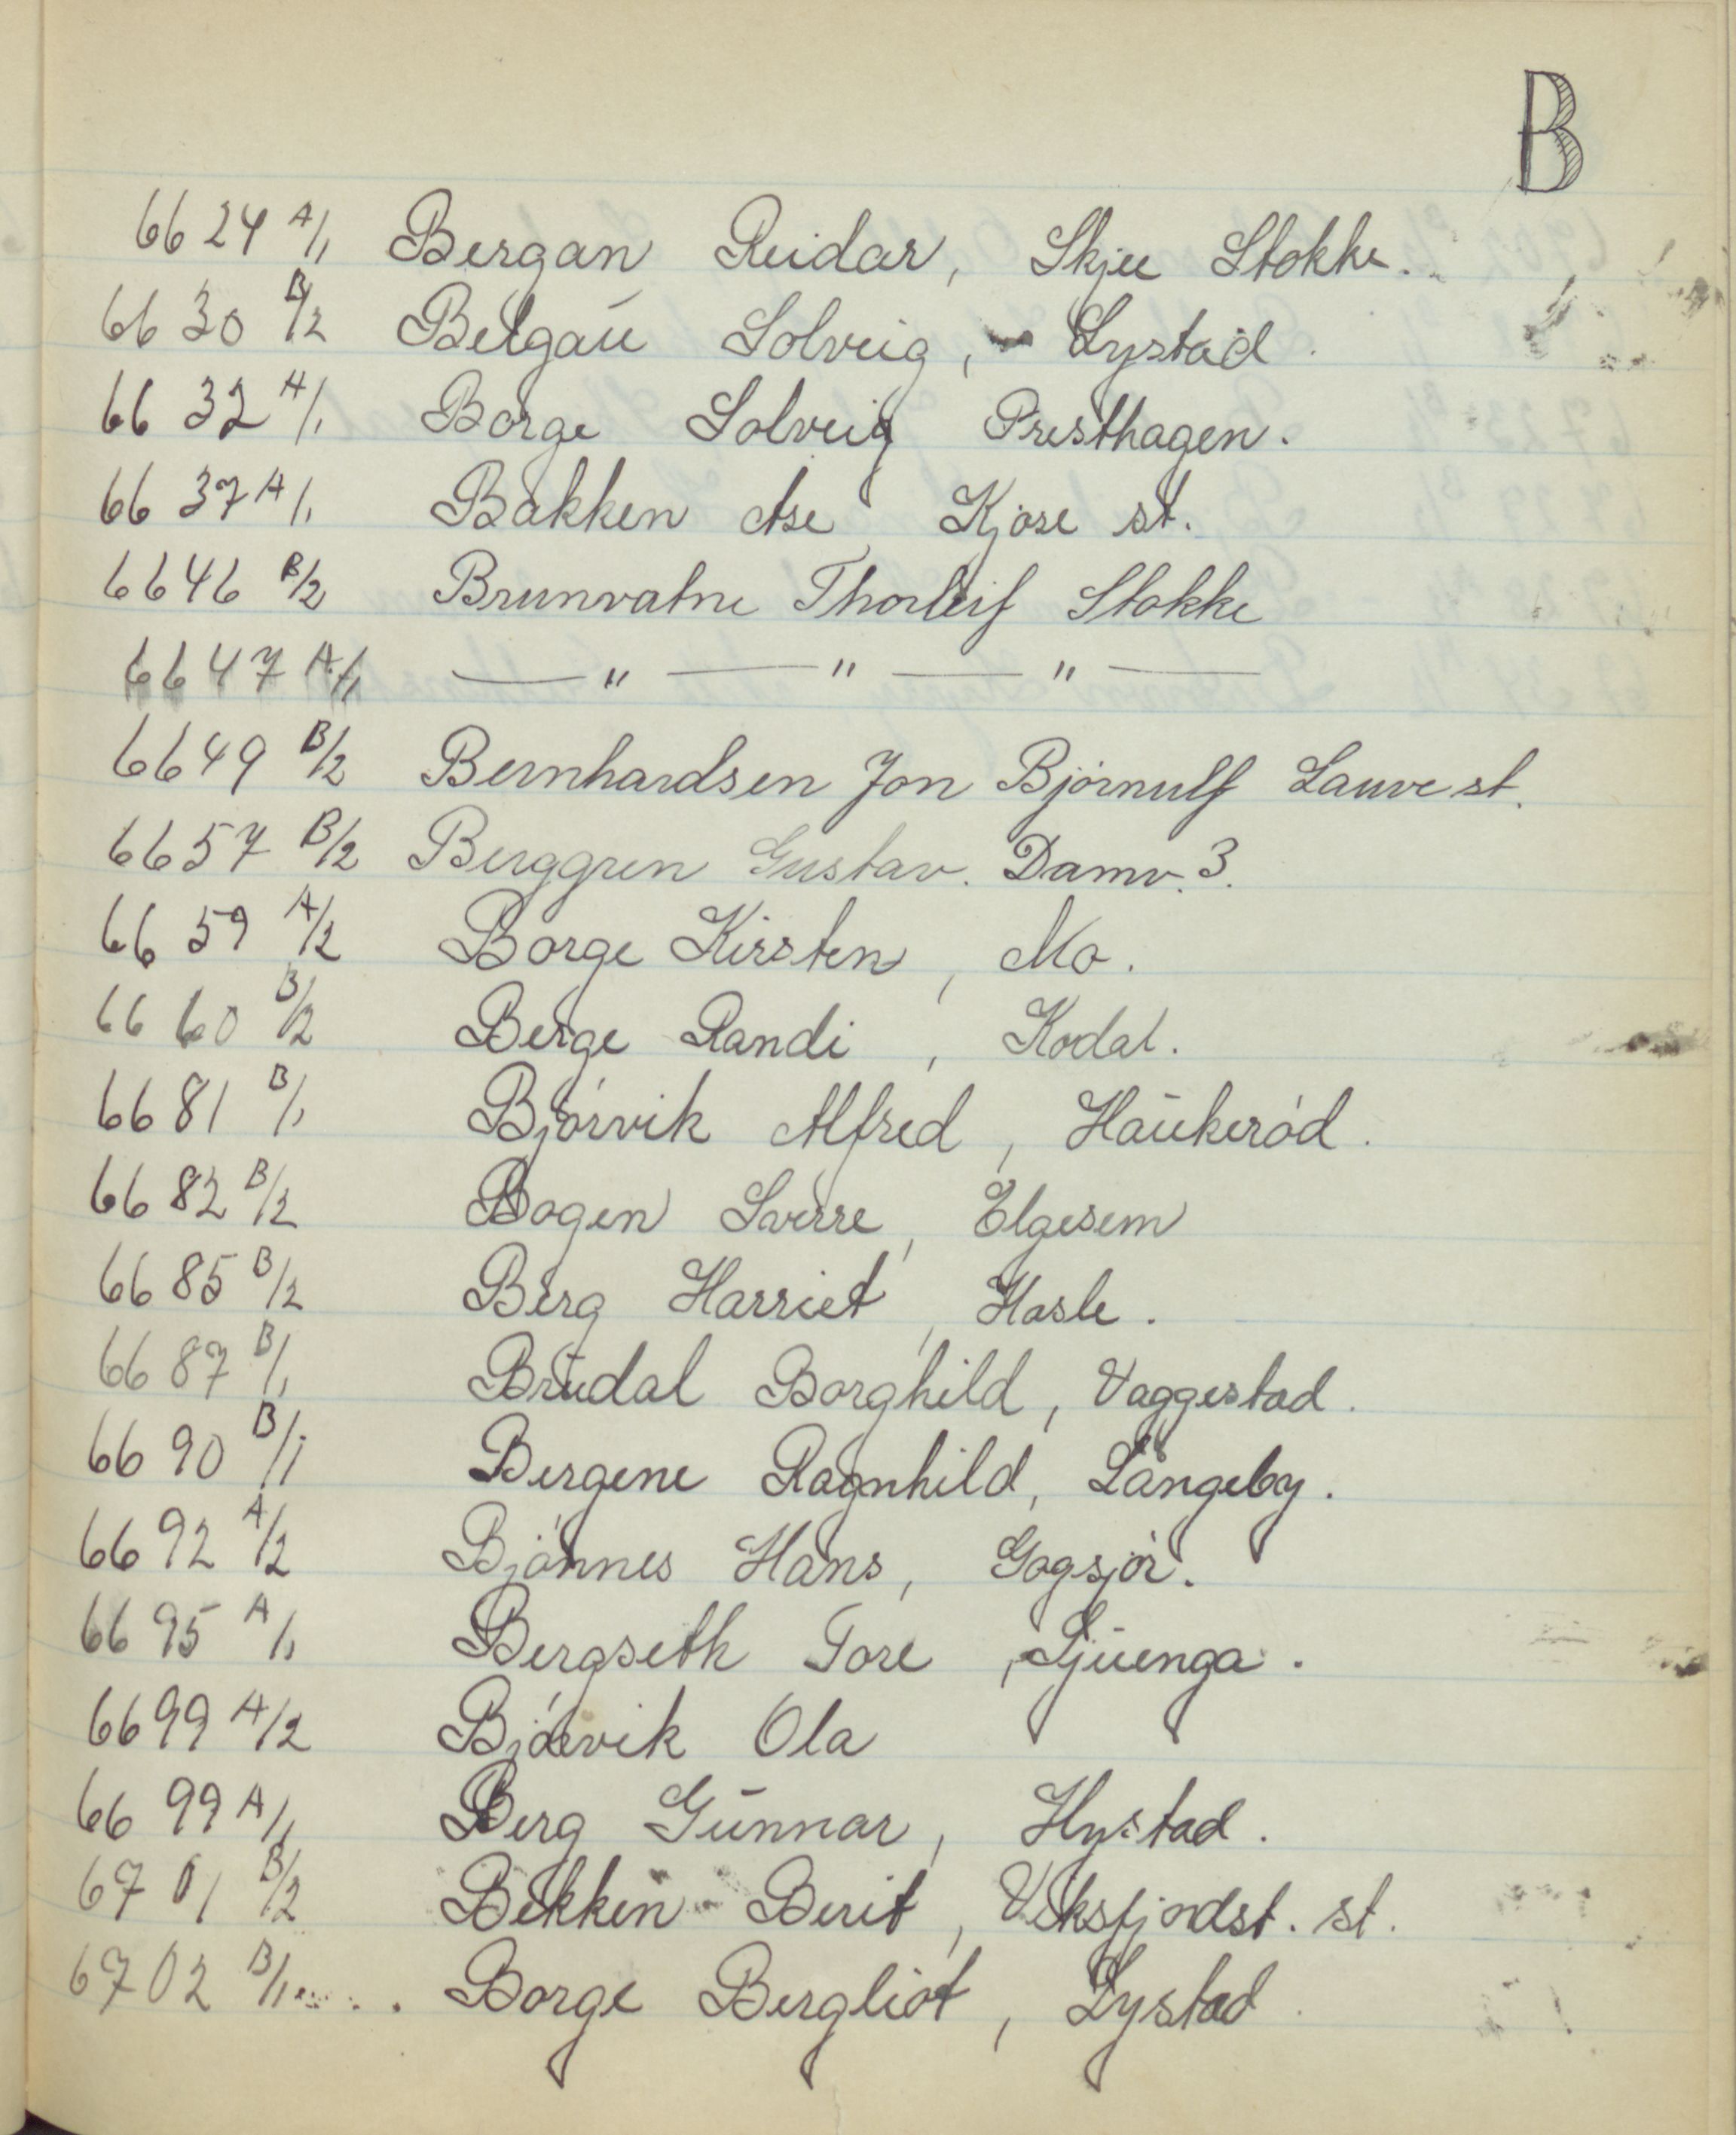 B
6624 A/1 Bergan Reidar, Skjee Stokke.
6630 B/2 Belgau Solveig, - Lystad.
6632 A/1 Borge Solveig Presthagen.
6637 A/1 Bakken Åse Kjose st.
6646 B/2 Brunvatne Thorleif Stokke
6647 A/1 — " — " — " —
6649 B/2 Bernhardsen Jon Bjørnulf Lauve st.
6657 B/2 Berggren Gustav. Damv. 3.
6659 A/2 Borge Kirsten, Mo.
6660 B/2 Berge Randi, Kodal.
6681 B/1 Bjórvik Alfred, Haukeród.
6682 B/2 Bogen Sverre, Elgesem
6685 B/2 Berg Harriet, Hasle.
6687 B/1 Brudal Borghild, Vaggestad.
6690 B/1 Bergene Ragnhild, Langeby.
6692 A/2 Bjónnes Hans, Gogsjór.
6695 A/1 Bergseth Tore, Sjuenga.
6699 A/2 Bjórvik Ola
6699 A/1 Berg Gunnar, Hystad.
6701 B/2 Bekken Berit, Viksfjordst. st.
6702 B/1 Borge Bergliot, Lystad